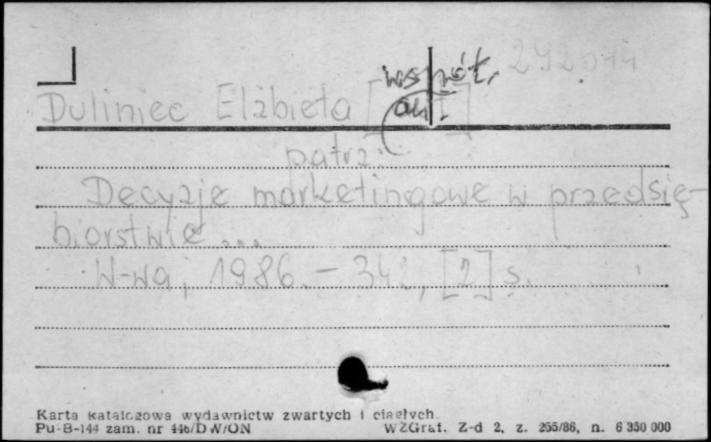 292014
współ.
Duliniec Elżbieta [aut.]
patrz:
Decyzje marketingowe w przedsię-
biorstwie ...
W-wa, 1986. – 342, [2] s.
Karta katalogowa wydawnictw zwartych i ciągłych.
Pu-B-144 zam. nr 446/DW/ON WZGraf. Z-d 2, z. 255/86, n. 6 350 000